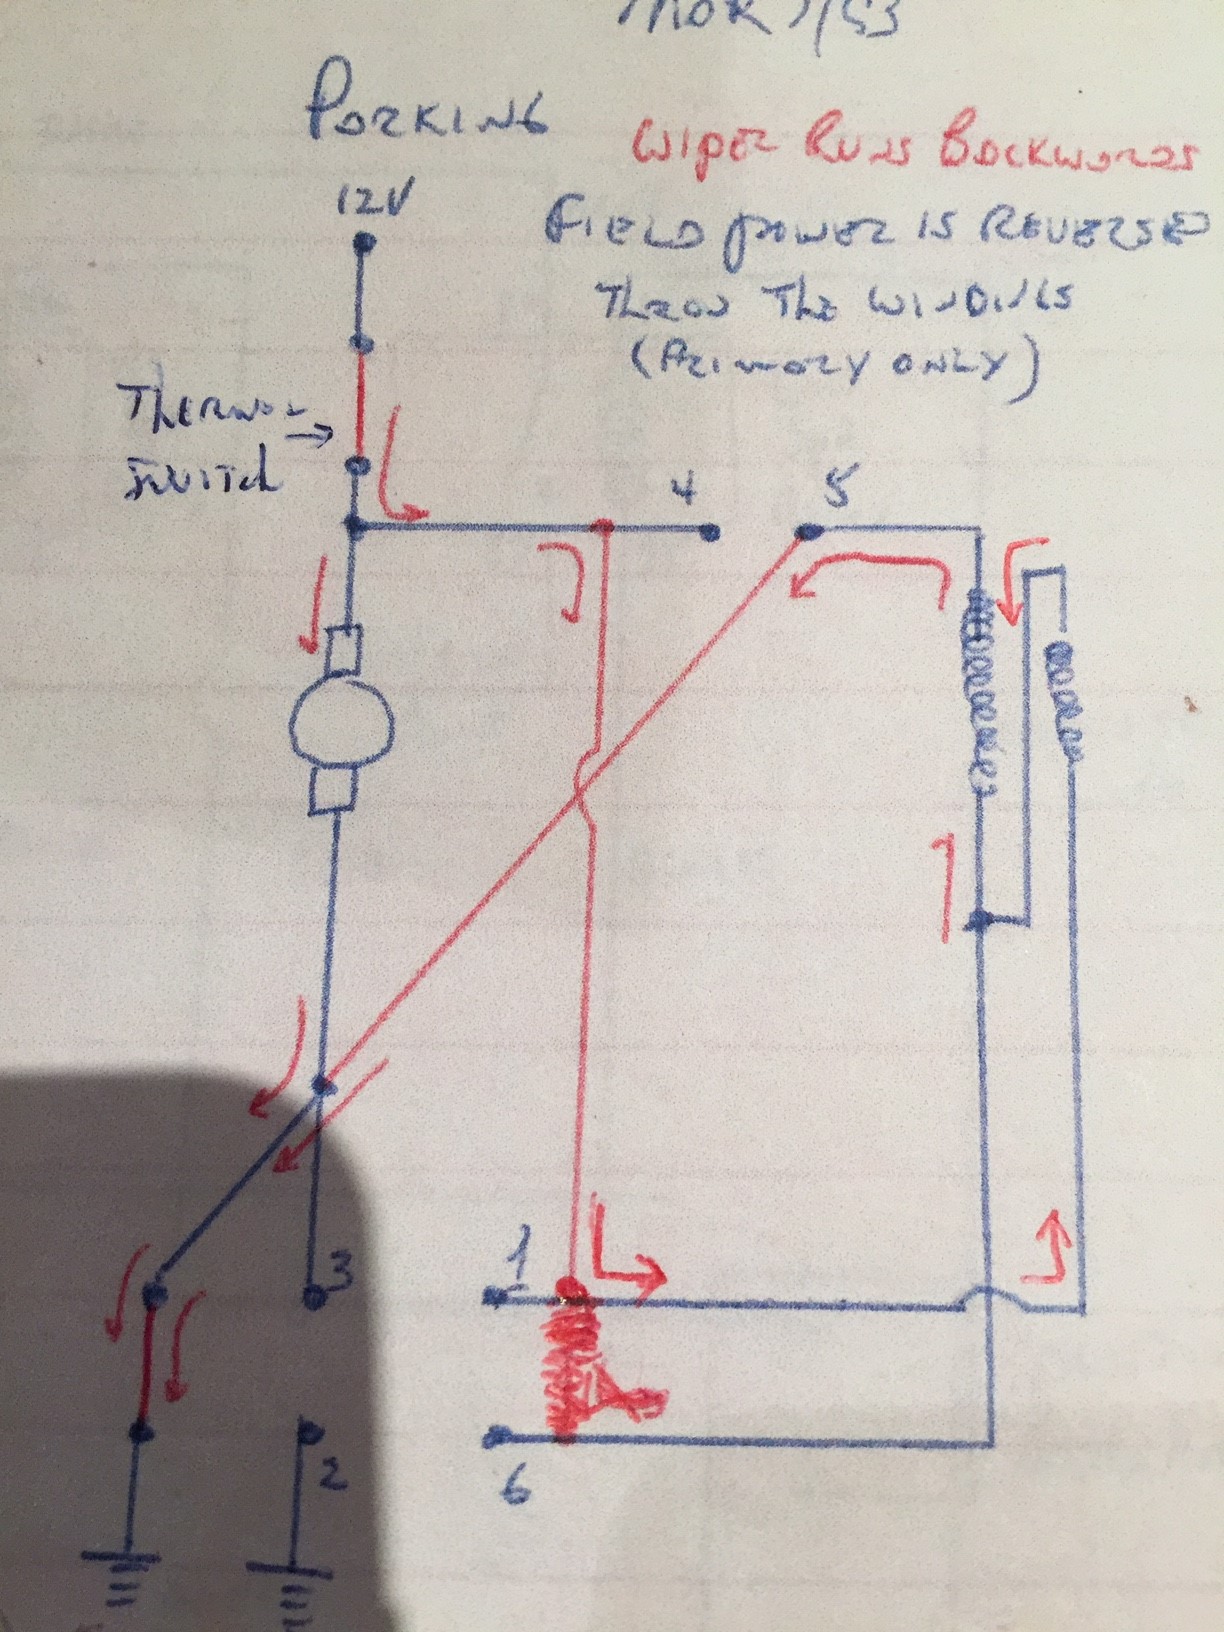 PARKING
WIPER RUNS BACKWARDS
12V
FIELD POWER IS REVERSED
THROU THE WINDINGS
(PRIMARY ONLY)
THERMAL
SWITCH
4
5
3
1
2
6